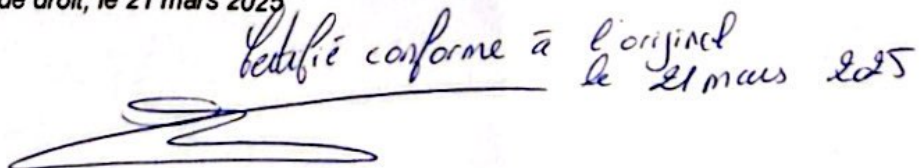 de droit, le 21 mars 2025
Certifié conforme à l'original
le 21 mars 2025